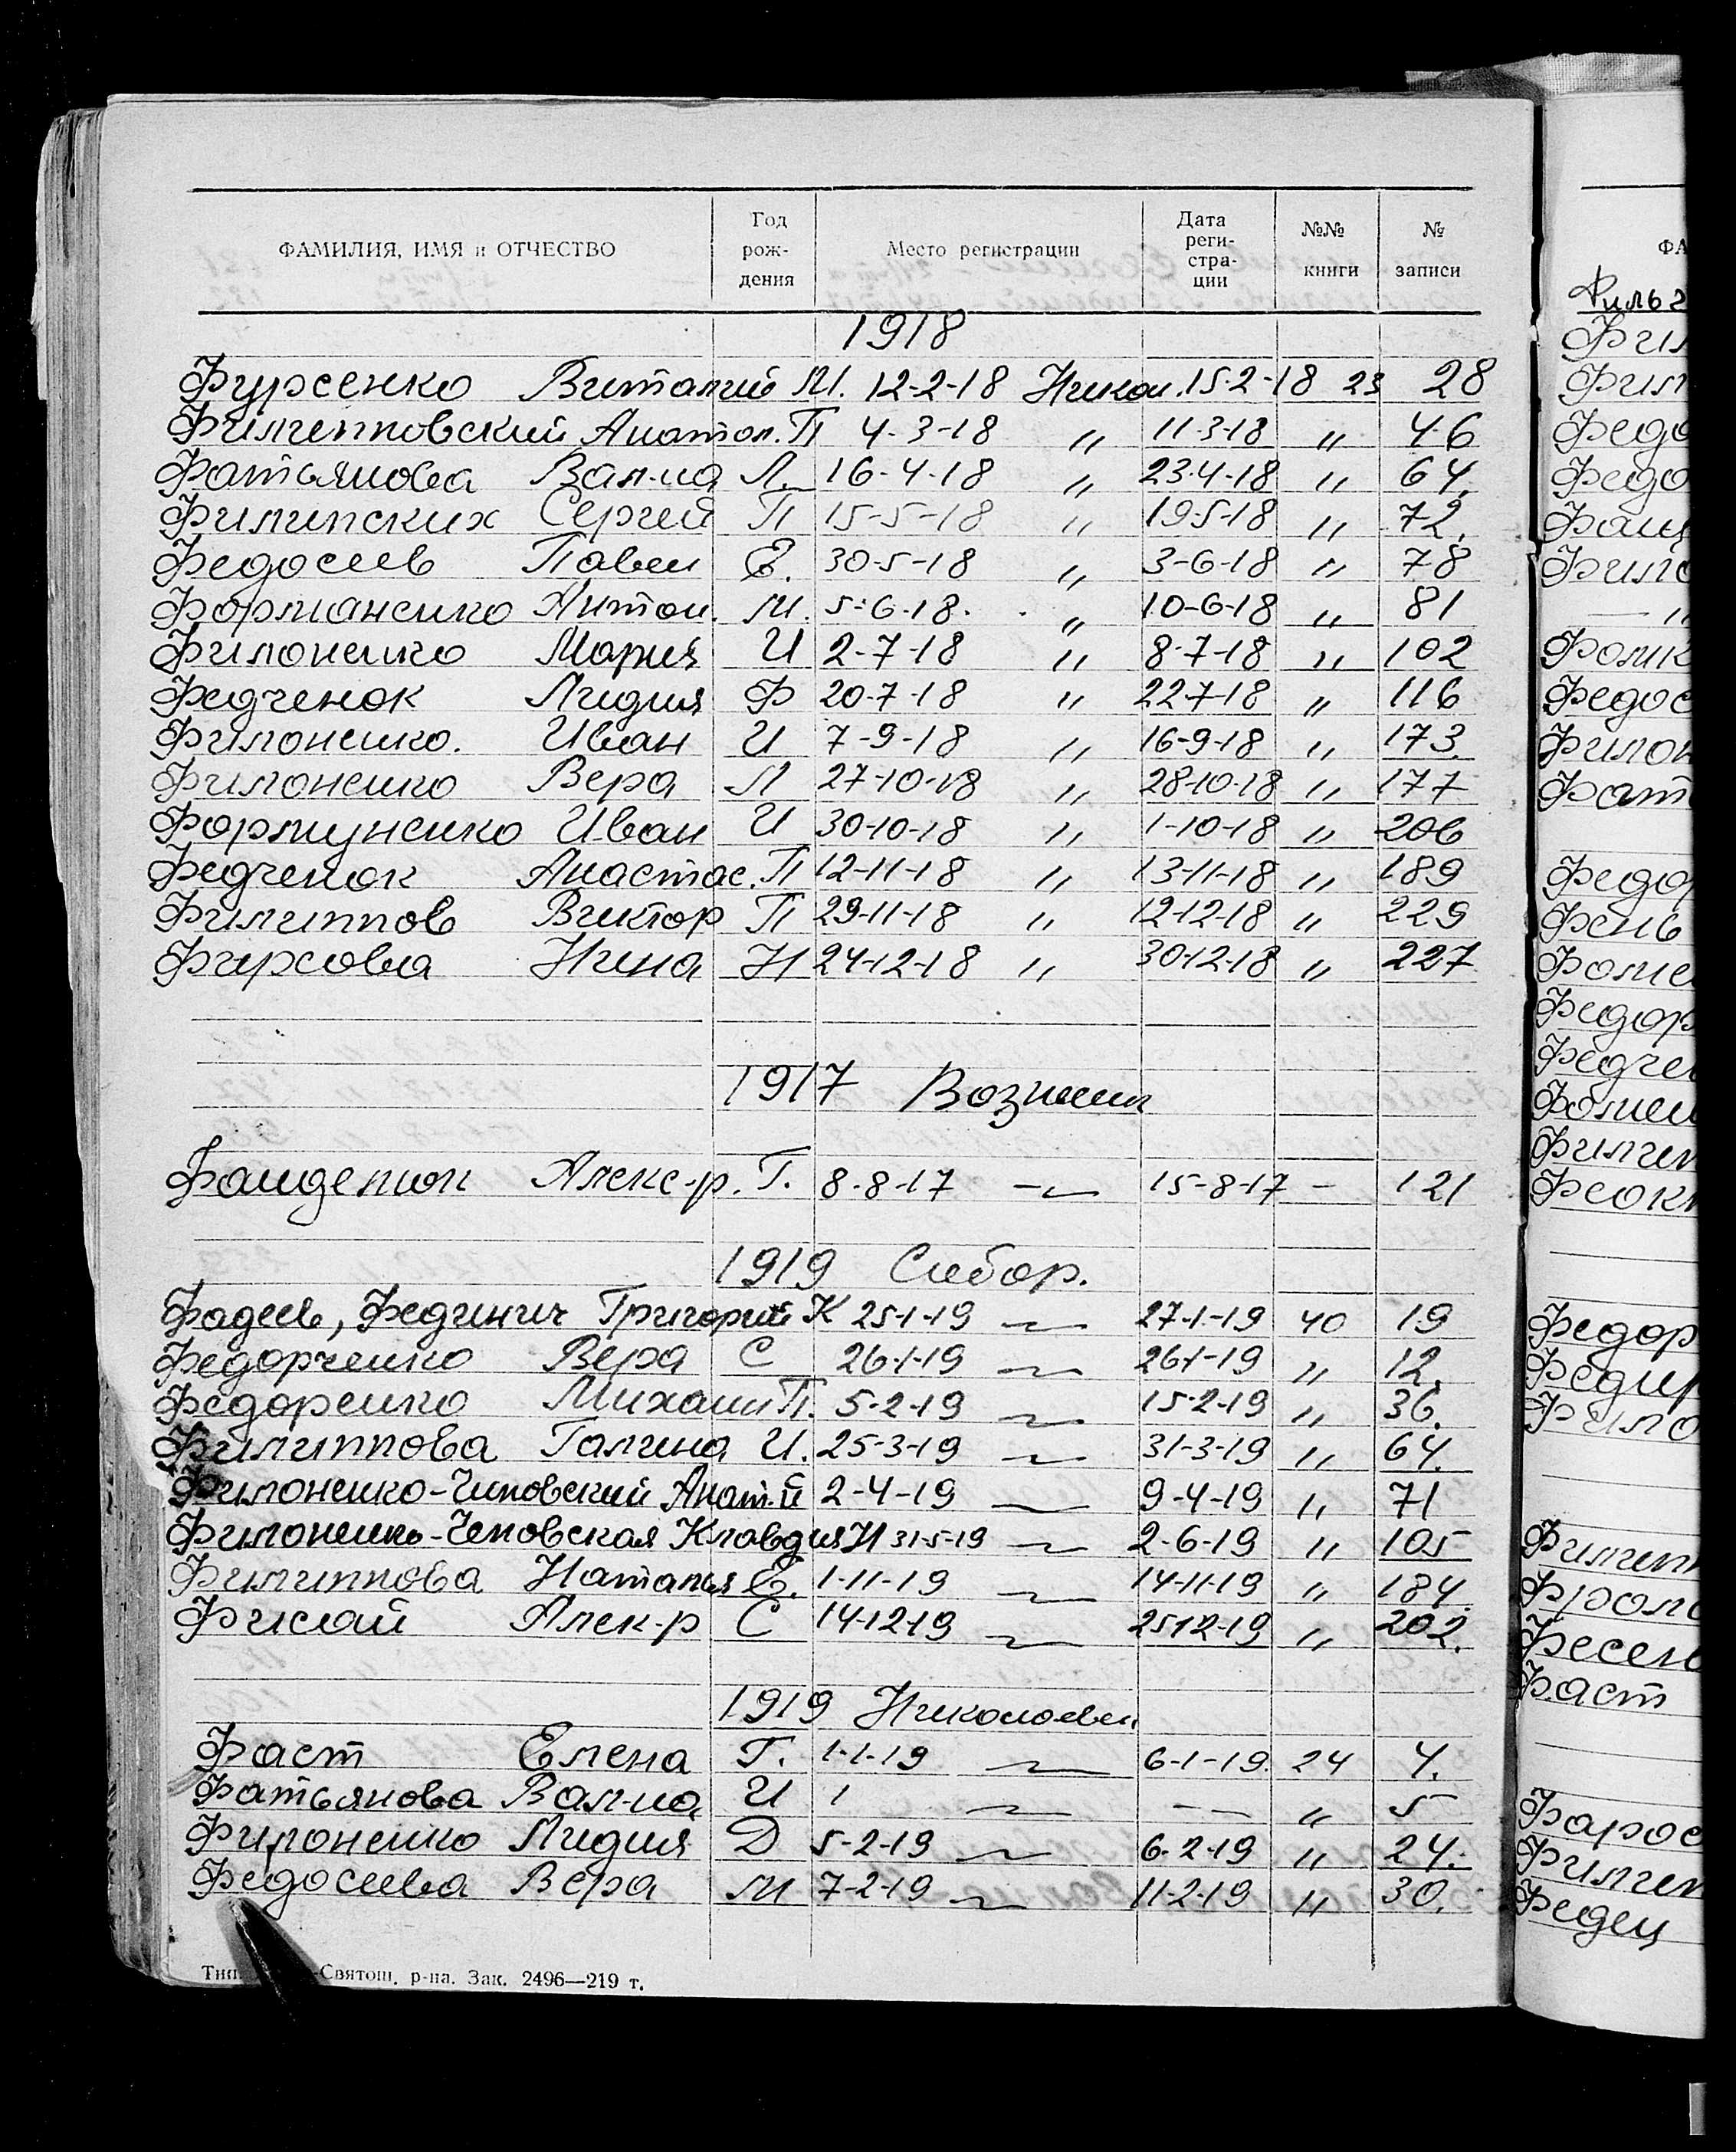 ФАМИЛИЯ, ИМЯ и ОТЧЕСТВО Год рождения Место регистрации Дата регистрации №№ книги № записи
1918
Фурсенко Виталий М. 12-2-18 Никол. 15-2-18 23 28
Филипповский Анатол. П 4-3-18 〃 11-3-18 〃 46
Фатьянова Вал-на Л. 16-4-18 〃 23-4-18 〃 64.
Филипских Сергей П 15-5-18 〃 19-5-18 〃 72.
Федосеев Павел Е. 30-5-18 〃 3-6-18 〃 78
Форманенко Антон. М. 5-6-18. 〃 10-6-18 〃 81
Филоненко Мария И 2-7-18 〃 8-7-18 〃 102
Федченок Лидия Ф 20-7-18 〃 22-7-18 〃 116
Филоненко. Иван И 7-9-18 〃 16-9-18 〃 173.
Филоненко Вера Л 27-10-18 〃 28-10-18 〃 177
Формуненко Иван И 30-10-18 〃 1-10-18 〃 206
Федченок Анастас. П 12-11-18 〃 13-11-18 〃 189
Филиппов Виктор П 29-11-18 〃 12-12-18 〃 229
Фирсова Нина Н 24-12-18 〃 30-12-18 〃 227
1917
8-8-17 — 15-8-17 — 121
Алекс-р. Г.
1919 Собор.
Фадеев, Фединич Григорий К 25-1-19 — 27-1-19 40 19
Федорченко Вера С 26-1-19 — 26-1-19 〃 12.
Федоренко Михаил П. 5-2-19 — 15-2-19 〃 36.
Филиппова Галина И. 25-3-19 — 31-3-19 〃 64.
Филоненко-Чиповский Анат-й 2-4-19 — 9-4-19 〃 71
Филоненко-Чеповская Клавдия Н 31-5-19 — 2-6-19 〃 105
Филиппова Наталья Е. 1-11-19 — 14-11-19 〃 184.
Алек-р С 14-12-19 — 25-12-19 〃 202.
1919 Николаевск
Фаст Елена Г. 1-1-19 — 6-1-19. 24 4.
Фатьянова Вал-на И 1 — — — 〃 5
Филоненко Лидия Д 5-2-19 — 6-2-19 〃 24.
Федосеева Вера М 7-2-19 — 11-2-19 〃 30.
Святош. р-на. Зак. 2496—219 т.
Фаст